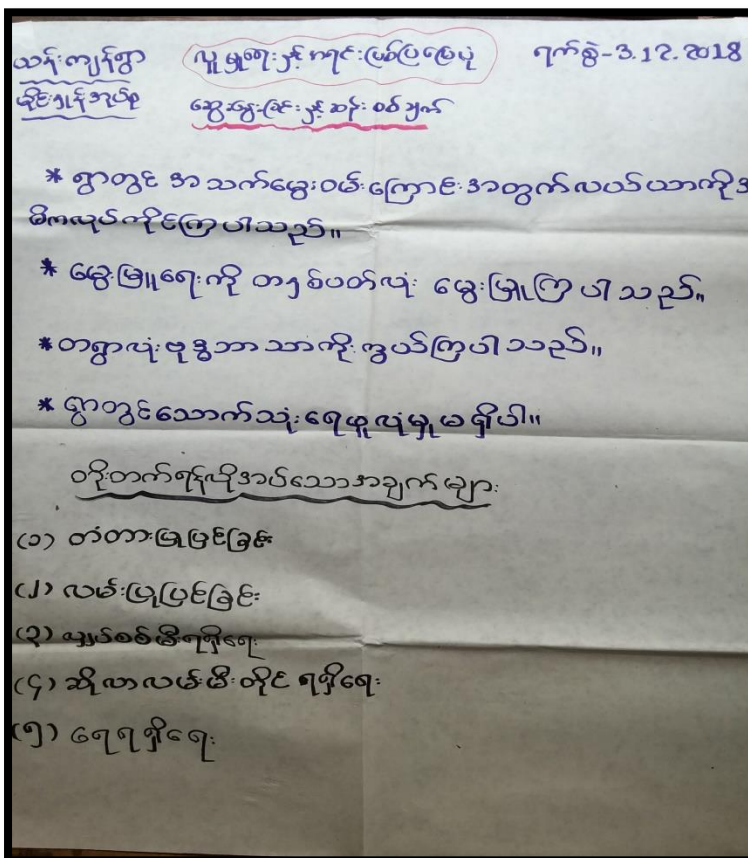 သန်းကျန်ရွာ လူမှုရေးနှင့်အရင်းမြစ်ပြမြေပုံ ရက်စွဲ-3.12.2018
ထိုင်ရှန်အုပ်စု ဆွေးနွေးခြင်းနှင့်ဆန်းစစ်ချက်
* ရွာတွင် အသက်မွေးဝမ်းကြောင်းအတွက်လယ်ယာကို
ဓိကလုပ်ကိုင်ကြပါသည်။
* မွေးမြူရေးကို တနှစ်ပတ်လုံး မွေးမြူကြပါသည်။
* တရွာလုံးဗုဒ္ဓဘာသာကိုးကွယ်ကြပါသည်။
* ရွာတွင်သောက်သုံးရေဖူလုံမှုမရှိပါ။
ဝဖိုးတက်ရန်လိုအပ်သောအချက်များ
(၁) တံတားပြုပြင်ခြင်း
(၂) လမ်းပြုပြင်ခြင်း
(၃) လျှပ်စစ်မီးရရှိရေး
(၄) ဆိုလာလမ်းမီးတိုင် ရရှိရေး
(၅) ရေရရှိရေး